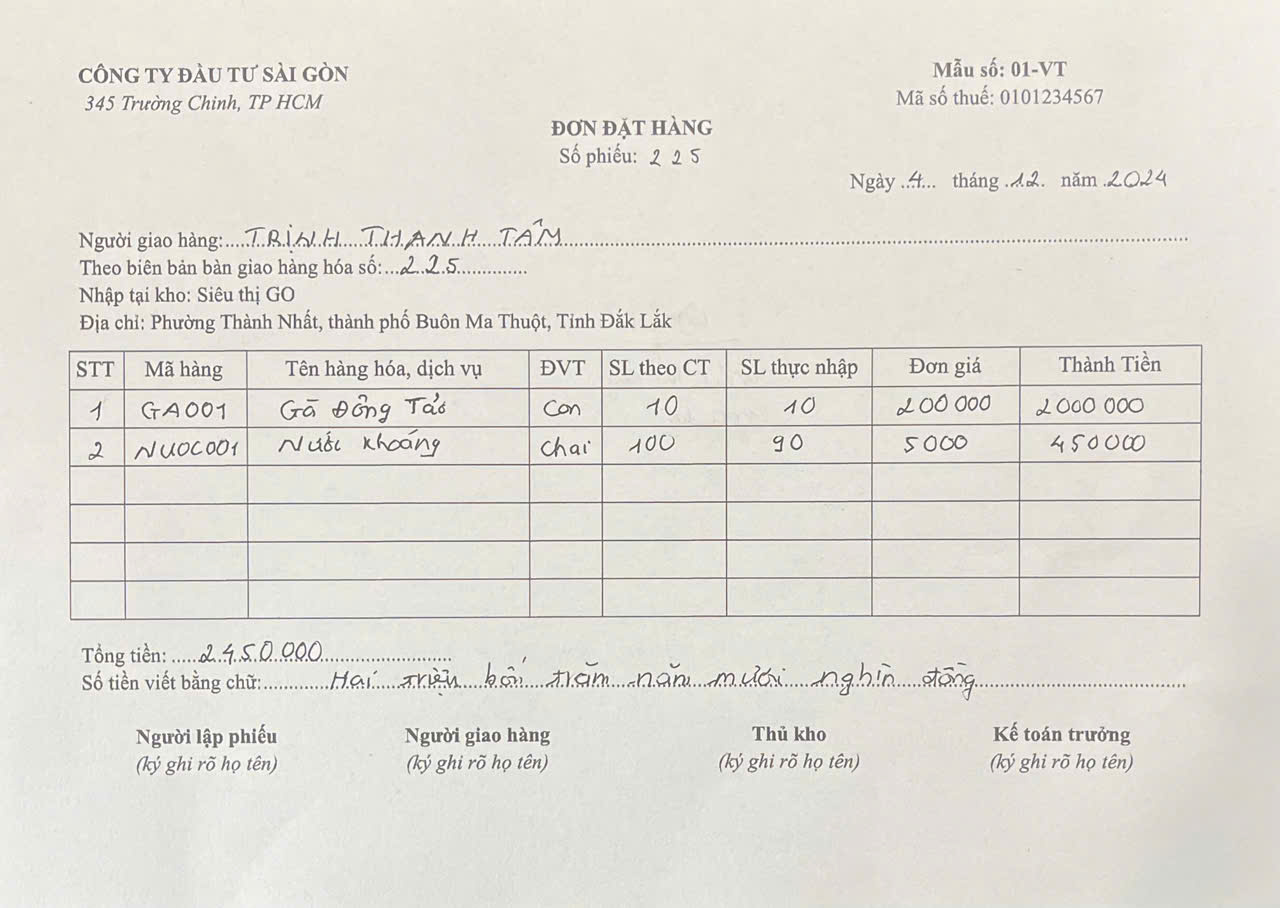 CÔNG TY ĐẦU TƯ SÀI GÒN
345 Trường Chinh, TP HCM
Mẫu số: 01-VT
Mã số thuế: 0101234567
ĐƠN ĐẶT HÀNG
Số phiếu: 225
Ngày 4 tháng 12 năm 2024
Người giao hàng: TRỊNH THANH TÂM
Theo biên bản bàn giao hàng hóa số: 225
Nhập tại kho: Siêu thị GO
Địa chỉ: Phường Thành Nhất, thành phố Buôn Ma Thuột, Tỉnh Đắk Lắk
STT Mã hàng Tên hàng hóa, dịch vụ ĐVT SL theo CT SL thực nhập Đơn giá Thành Tiền
1 GA001 Gà Đông Tảo Con 10 10 200 000 2000 000
2 NUOC001 Nước khoáng Chai 100 90 5000 450000
Tổng tiền: 2450.000
Số tiền viết bằng chữ: Hai triệu bốn trăm năm mươi nghìn đồng
Người lập phiếu Người giao hàng Thủ kho Kế toán trưởng
(ký ghi rõ họ tên) (ký ghi rõ họ tên) (ký ghi rõ họ tên) (ký ghi rõ họ tên)